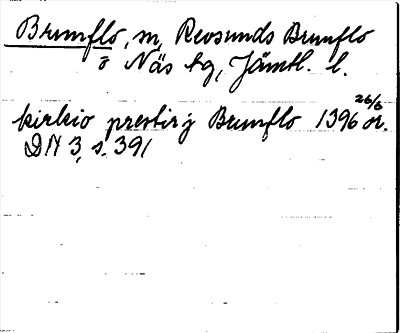 Brunflo, sn, Revsunds Brunflo
o Näs tg, Jämtl. l.
kirkio prestir j Brunflo 1396 26/6 or.
DN 3, s. 391